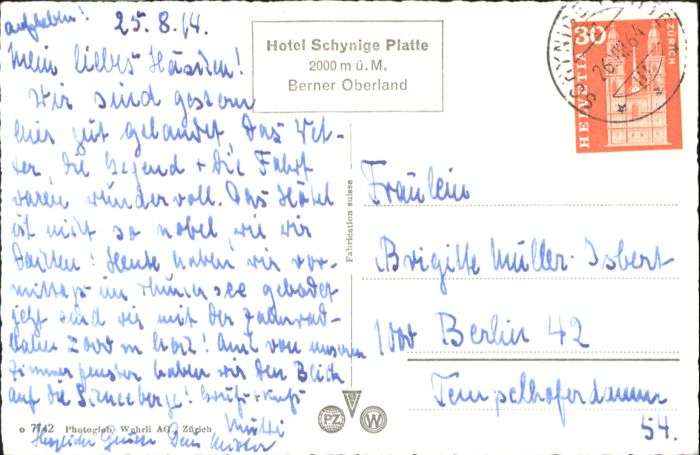 aufheben!
25.8.64.
Mein liebes Häschen!
Wir sind gestern
hier gut gelandet, das Wet-
ter, die Gegend + die Fahrt
waren wundervoll. Das Hotel
ist nicht so nobel wie wir
dachten! Heute haben wir vor-
mittags im Thuner See gebadet
jetzt sind wir mit der Zahnrad-
bahn 2000 m hoch! Auch von unserem
Zimmerfenster haben wir den Blick
auf die Schneeberge! Gruß + Kuß
Mutti
Herzliche Grüße Dein
Hotel Schynige Platte
2000 m ü. M.
Berner Oberland
HELVETIA
30
ZÜRICH
SCHYNIGE PLATTE
26.VIII.64
Fabrication suisse
Fräulein
Brigitte Müller-Isbert
1000 Berlin 42
Tempelhoferdamm
54.
PZ
W
o 7742 Photoglob-Wehrli AG, Zürich